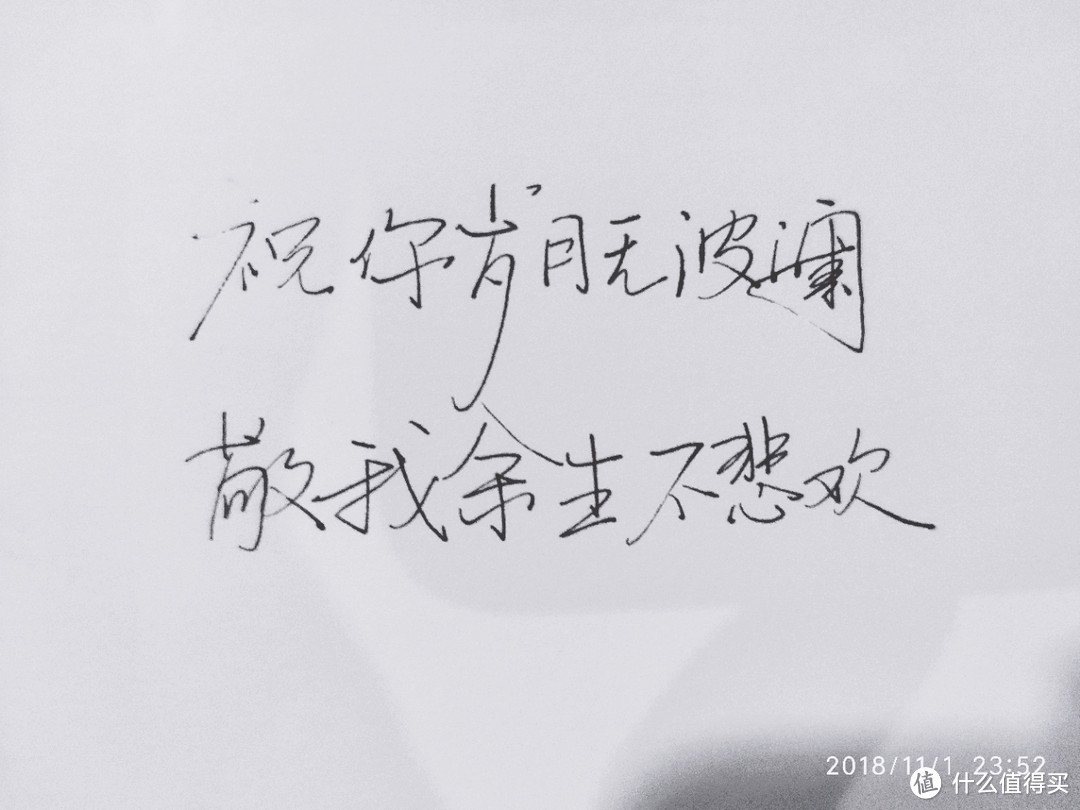 祝你岁月无波澜
敬我余生不悲欢
2018/11/1 23:52
值 什么值得买